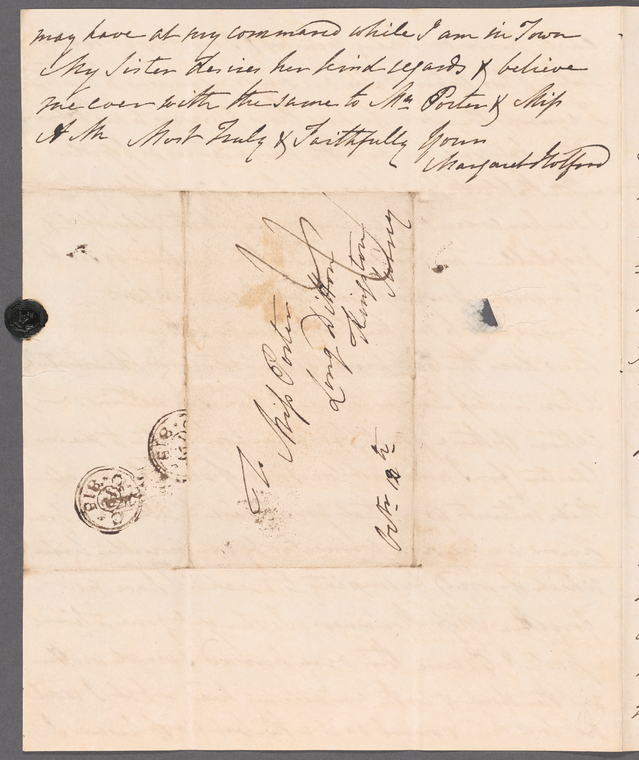 may have at my command while I am in Town
My Sister desires her kind regards & believe
me ever with the same to Mrs Porter & Miſs
A M Most Truly & Faithfully Yours
Margaret Holford
To
Miſs Porter
Long Ditton
Kingston
Surrey
Octr 12th